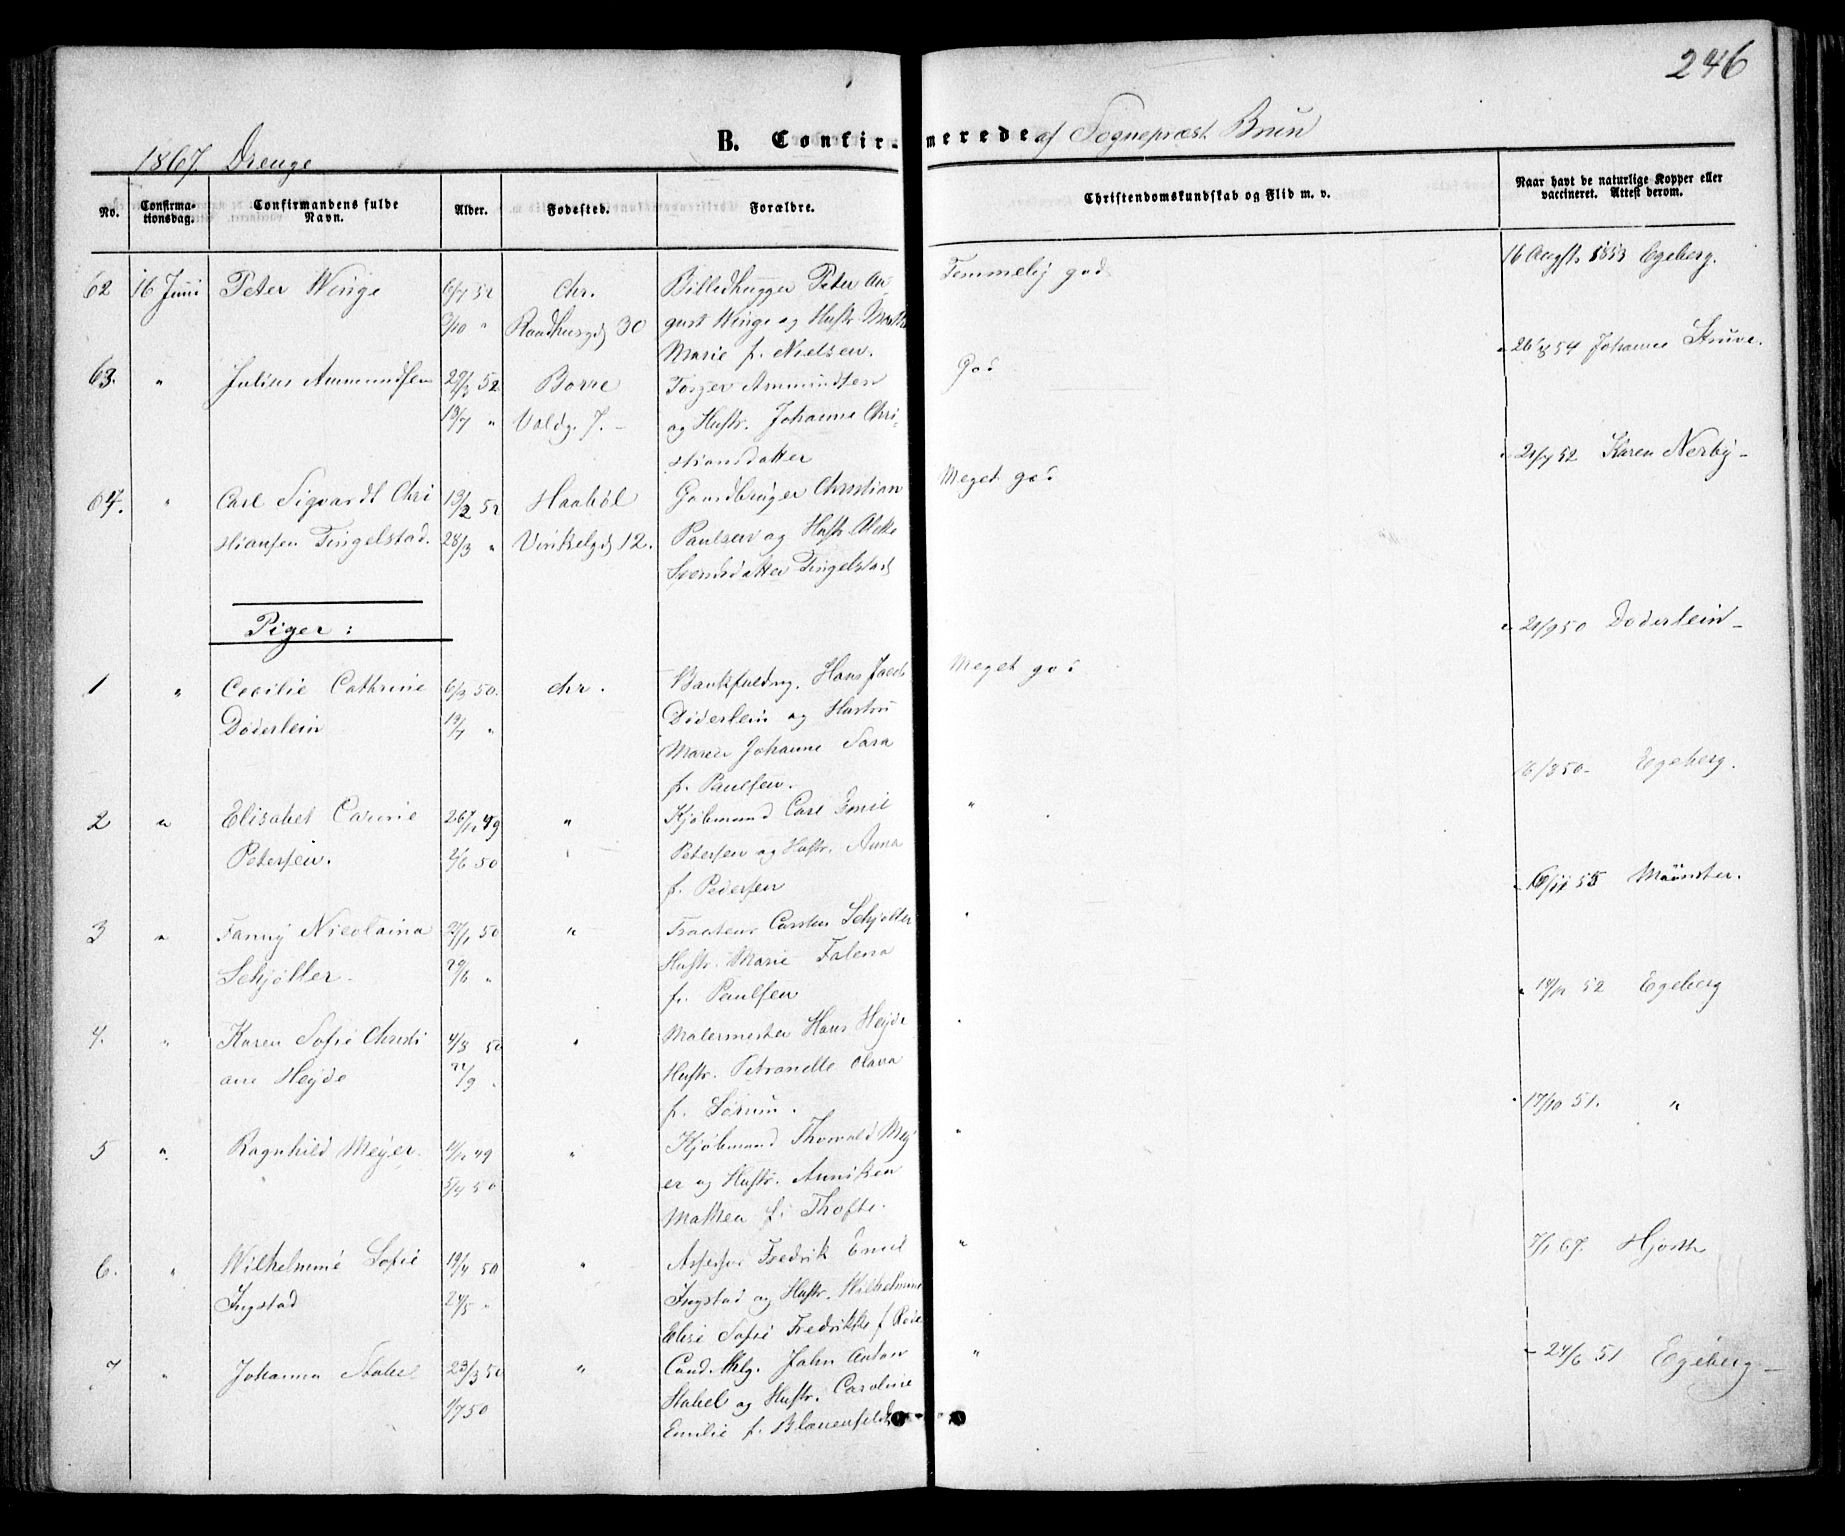 246
1867. Drenge
B. Confirmerede af Sognepræst Brun
No.
Confirmationsdag.
Confirmandens fulde Navn.
Alder.
Fødested.
Forældre.
Christendomskundskab og Flid m. v.
Naar havt de naturlige Kopper eller vaccineret. Attest derom.
62 16 Juni Peter Winge 6/7 52 Chr. Billedhugger Peter Au- Temmelig god 16 Augst. 1853 Egeberg.
3/10 " Raadhusgd 30 gust Winge og Hustr.
Marie f. Nielsen.
63. " Julius Ammundsen 29/3 52 Borre Torger Ammundsen God Johanne Struve.
13/7 " Voldg. 7. - og Hustr. Johanne Chri-
stiansdatter
64. " Carl Sigvardt Chri 13/2 52 Haabøl Gaardbruger Christian Meget god 21/7 52 Karen Nerby -
stiansen Tingelstad. 28/3 " Vinkelgd 12. Paulsen og Hustr.
Svendsdatter Tingelstad
Piger:
1 " Cecilie Cathrine 6/3 50. Chr. Bankfuldmg. Hans Jacob Meget god 21/9 50 Døderlein -
Døderlein 13/7 " Døderlein og Hustru
Maren Johanne Sara
f. Paulsen.
2 " Elisabet Carine 26/12 49 " Kjøbmand Carl Emil " 16/8 50 - Egeberg.
Petersen. 2/6 50 " Petersen og Hustr. Anna
f. Pedersen
3 " Fanny Nicolaina 27/1 50 " Tracteur Carsten Schjøtter " 6/11 55 Münster.
Schjøtter. 29/6 " Hustr. Marie
f. Paulsen
4. " Karen Sofie Christi 4/8 50 " Malermester Hans Heyde " 18/12 52 Egeberg
ane Heyde 22/9 " Hustr. Petranelle Olava
f. Sørum.
5 " Ragnhild Meyer. 11/12 49 " Kjøbmand Thorvald Mey " 17/10 51. "
5/4 50 er og Hustr. Anniken
Mathea f. Thofte.
6. " Wilhelmine Sofie 19/4 50 " Assessor Fredrik Emil " 7/1 67. Hjorth
Ingstad 24/5 " Ingstad og Hustr. Wilhelmine
Elise Sofie Fredrikke f
7 " Johanna Stabel 23/3 50 " Cand. Thlg. John Anton " - 24/6 51 Egeberg -
1/7 50 Stabel og Hustr. Caroline
Emilie f. Blauenfeldt